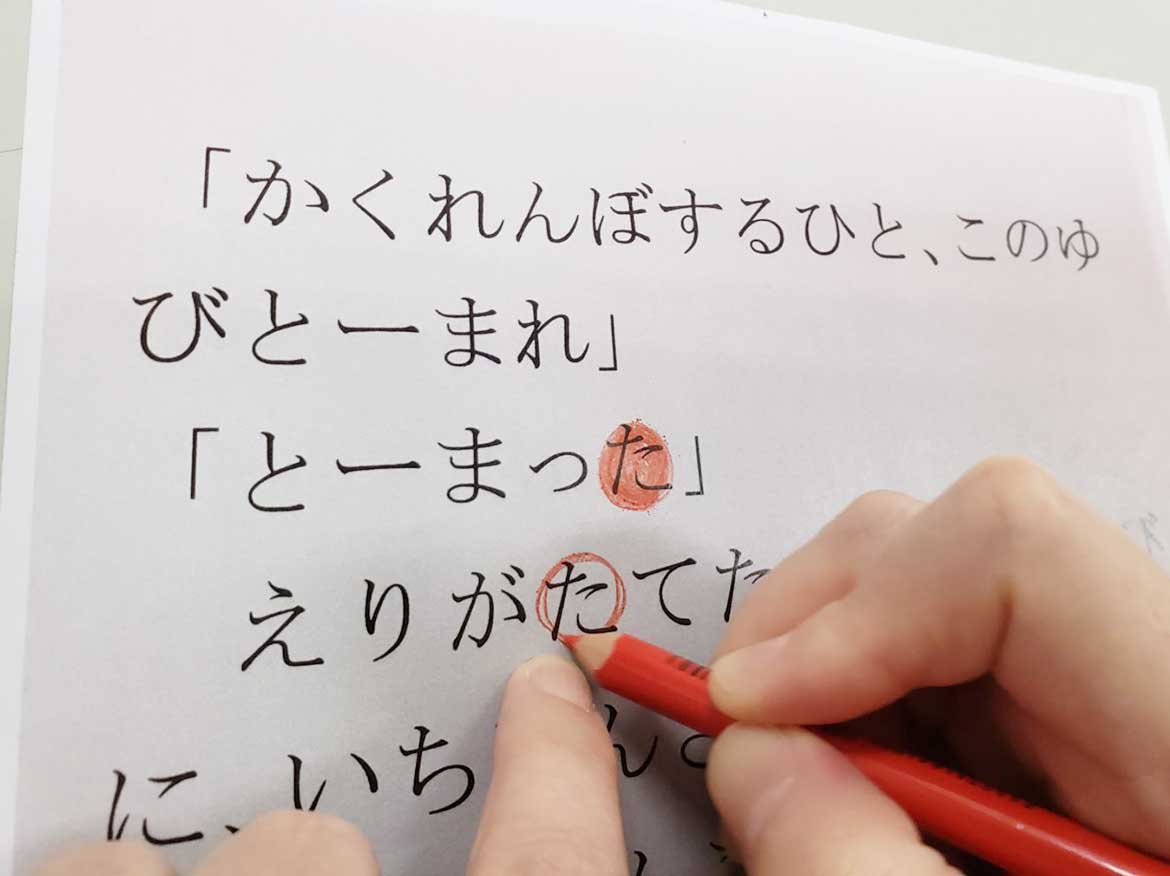 「かくれんぼするひと、このゆ
びとーまれ」
「とーまった」
えりがたてた
に、いち